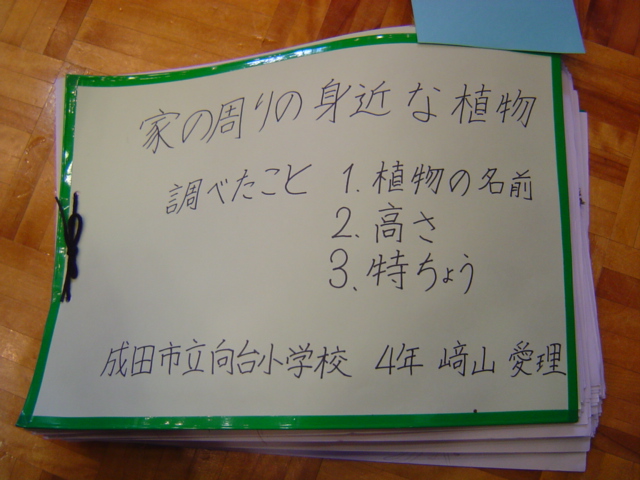 家の周りの身近な植物
調べたこと 1. 植物の名前
2. 高さ
3. 特ちょう
成田市立向台小学校 4年 﨑山 愛理